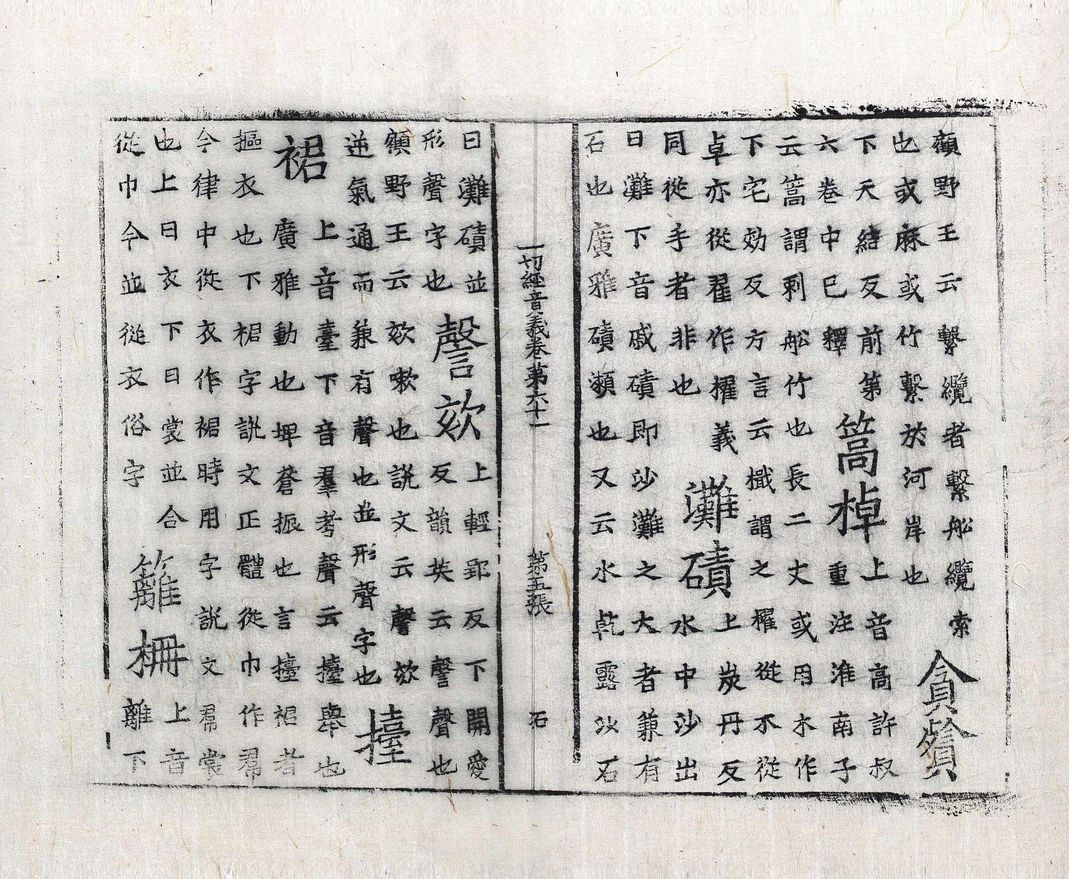 顧野王云繫纜者繫船纜索
也或麻或竹繫於河岸也
貪餮
下天結反前第
六卷中已釋
篙棹
上音高許叔
重注淮南子
云篙謂刺船竹也長二丈或用木作
下宅効反方言云檝謂之櫂從木從
卓亦從翟作擢義
同從手者非也
灘磧
上炭丹反
水中沙出
曰灘下音戚磧即沙灘之大者兼有
石也廣雅磧瀨也又云水乾露沙石
一切經音義卷第六十一 第五張 石
曰灘磧並
形聲字也
謦欬
上輕郢反下開愛
反韻英云謦聲也
顧野王云欬嗽也説文云謦欬
逆氣通而兼有聲也並形聲字也
擡
裙
上音臺下音羣考聲云擡舉也
廣雅動也埤蒼振也言擡裙者
摳衣也下裙字説文正體從巾作帬
今律中從衣作裙時用字説文帬裳
也上曰衣下曰裳並合
從巾今並從衣俗字
籬柵
上音
離下